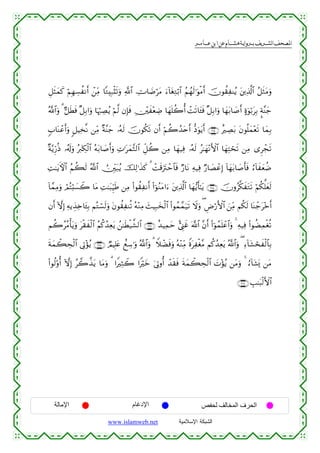 المصحف الشريف برواية هشام عن ابن عامر
وَمَثَلُ ٱلَّذِينَ يُنفِقُونَ أَمْوَٰلَهُمُ ٱبْتِغَآءَ مَرْضَاتِ ٱللَّهِ وَتَثْبِيتًا مِّنْ أَنفُسِهِمْ كَمَثَلِ
جَنَّةٍۭ بِرَبْوَةٍ أَصَابَهَا وَابِلٌ فَـَٔاتَتْ أُكُلَهَا ضِعْفَيْنِ فَإِن لَّمْ يُصِبْهَا وَابِلٌ فَطَلٌّ ۗ وَٱللَّهُ
بِمَا تَعْمَلُونَ بَصِيرٌ أَيَوَدُّ أَحَدُكُمْ أَن تَكُونَ لَهُۥ جَنَّةٌ مِّن نَّخِيلٍ وَأَعْنَابٍ
تَجْرِى مِن تَحْتِهَا ٱلْأَنْهَٰرُ لَهُۥ فِيهَا مِن كُلِّ ٱلثَّمَرَٰتِ وَأَصَابَهُ ٱلْكِبَرُ وَلَهُۥ ذُرِّيَّةٌ
ضُعَفَآءُ فَأَصَابَهَآ إِعْصَارٌ فِيهِ نَارٌ فَٱحْتَرَقَتْ ۗ كَذَٰلِكَ يُبَيِّنُ ٱللَّهُ لَكُمُ ٱلْـَٔايَٰتِ
لَعَلَّكُمْ تَتَفَكَّرُونَ يَٰٓأَيُّهَا ٱلَّذِينَ ءَامَنُوٓا۟ أَنفِقُوا۟ مِن طَيِّبَٰتِ مَا كَسَبْتُمْ وَمِمَّآ
أَخْرَجْنَا لَكُم مِّنَ ٱلْأَرْضِ ۖ وَلَا تَيَمَّمُوا۟ ٱلْخَبِيثَ مِنْهُ تُنفِقُونَ وَلَسْتُم بِـَٔاخِذِيهِ إِلَّآ أَن
تُغْمِضُوا۟ فِيهِ ۚ وَٱعْلَمُوٓا۟ أَنَّ ٱللَّهَ غَنِىٌّ حَمِيدٌ ٱلشَّيْطَٰنُ يَعِدُكُمُ ٱلْفَقْرَ وَيَأْمُرُكُم
بِٱلْفَحْشَآءِ ۖ وَٱللَّهُ يَعِدُكُم مَّغْفِرَةً مِّنْهُ وَفَضْلًا ۗ وَٱللَّهُ وَٰسِعٌ عَلِيمٌ يُؤْتِى ٱلْحِكْمَةَ
مَن يَشَآءُ ۚ وَمَن يُؤْتَ ٱلْحِكْمَةَ فَقَدْ أُوتِىَ خَيْرًا كَثِيرًا ۗ وَمَا يَذَّكَّرُ إِلَّآ أُو۟لُوا۟
ٱلْأَلْبَٰبِ
الحرف المخالف لحفص الإدغام الإمالة
www.islamweb.net الشبكة الإسلامية